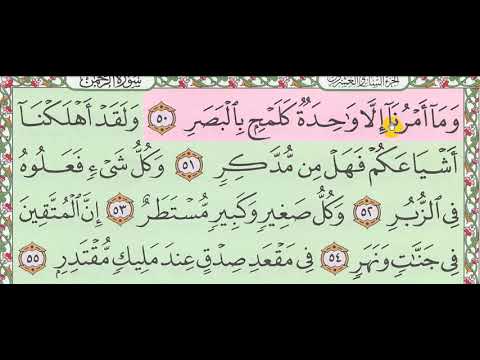 سُورَةُ الرَّحْمٰن
الجزء السابع والعشرون
وَمَآ أَمْرُنَآ إِلَّا وَٰحِدَةٌ كَلَمْحٍۭ بِالْبَصَرِ ٥٠ وَلَقَدْ أَهْلَكْنَآ
أَشْيَاعَكُمْ فَهَلْ مِن مُّدَّكِرٍ ٥١ وَكُلُّ شَىْءٍ فَعَلُوهُ
فِى الزُّبُرِ ٥٢ وَكُلُّ صَغِيرٍ وَكَبِيرٍ مُّسْتَطَرٌ ٥٣ إِنَّ الْمُتَّقِينَ
فِى جَنَّٰتٍ وَنَهَرٍ ٥٤ فِى مَقْعَدِ صِدْقٍ عِندَ مَلِيكٍ مُّقْتَدِرٍۭ ٥٥